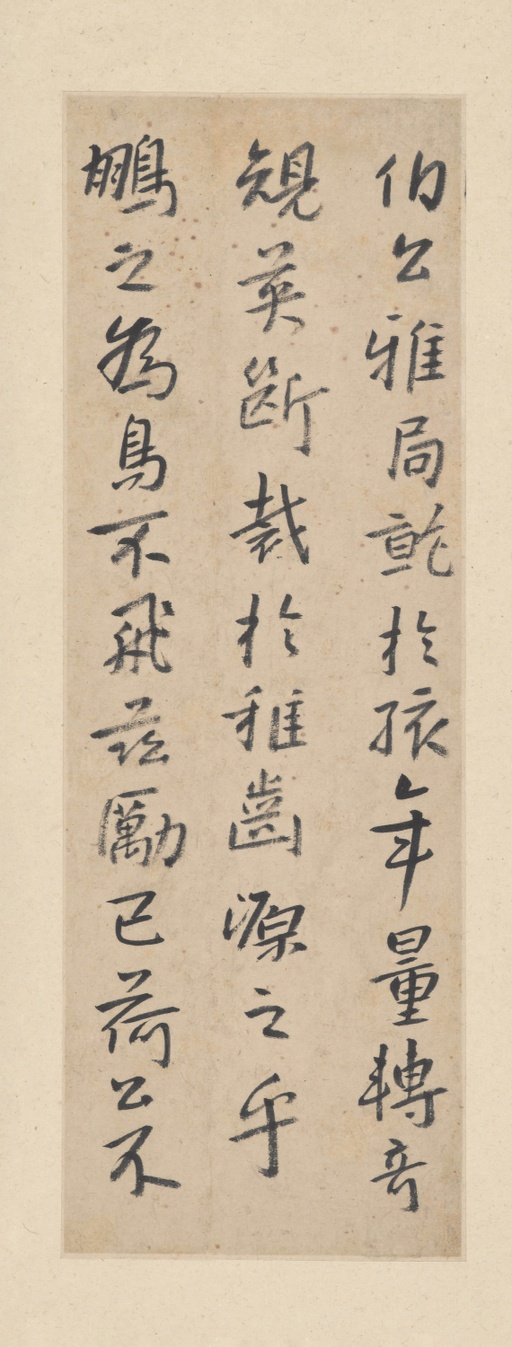 伯公雅局於孩年量轉奇
規英斷裁於稚齒源之乎
鵬之為鳥不飛茲勵已荷公不